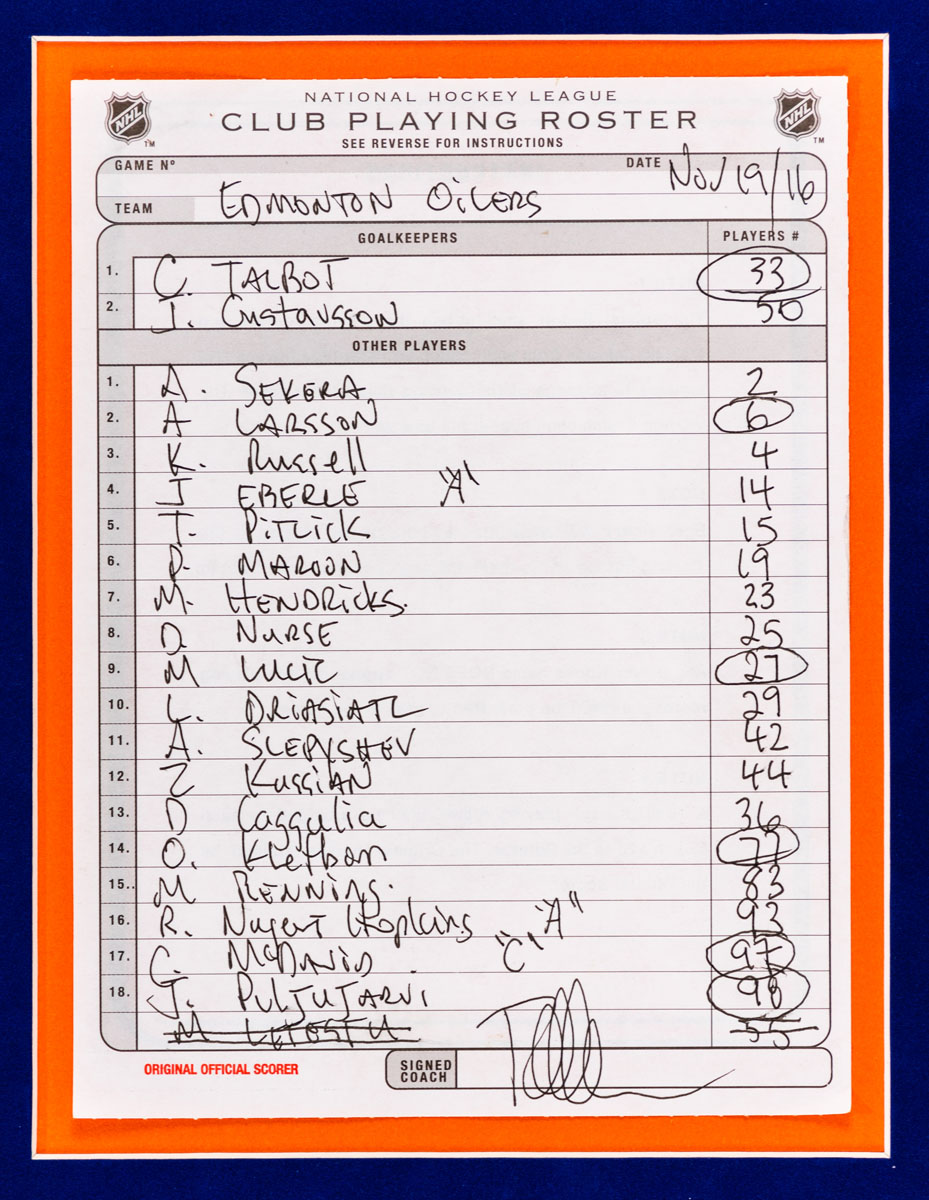 NHL TM NATIONAL HOCKEY LEAGUE NHL TM
CLUB PLAYING ROSTER
SEE REVERSE FOR INSTRUCTIONS
GAME Nº DATE Nov 19/16
TEAM EDMONTON OiLERS
GOALKEEPERS PLAYERS #
1. C. TALBOT 33
2. J. Gustavsson 50
OTHER PLAYERS
1. A. SEKERA 2
2. A LARSSON 6
3. K. Russell 4
4. J EBERLE "A" 14
5. T. PiTLICK 15
6. P. MAROON 19
7. M. HENDRICKS. 23
8. D. NURSE 25
9. M LUCIC 27
10. L. DRIASIATL 29
11. A. SLEPYSHEV 42
12. Z KassiAN 44
13. D Caggulia 36
14. O. Klefbom 77
15. M RENNING. 83
16. R. Nugent Hopkins "A" 93
17. C. McDAViD "C" 97
18. J. PULJUJARVI 98
M LETESTU 55
ORIGINAL OFFICIAL SCORER
SIGNED
COACH